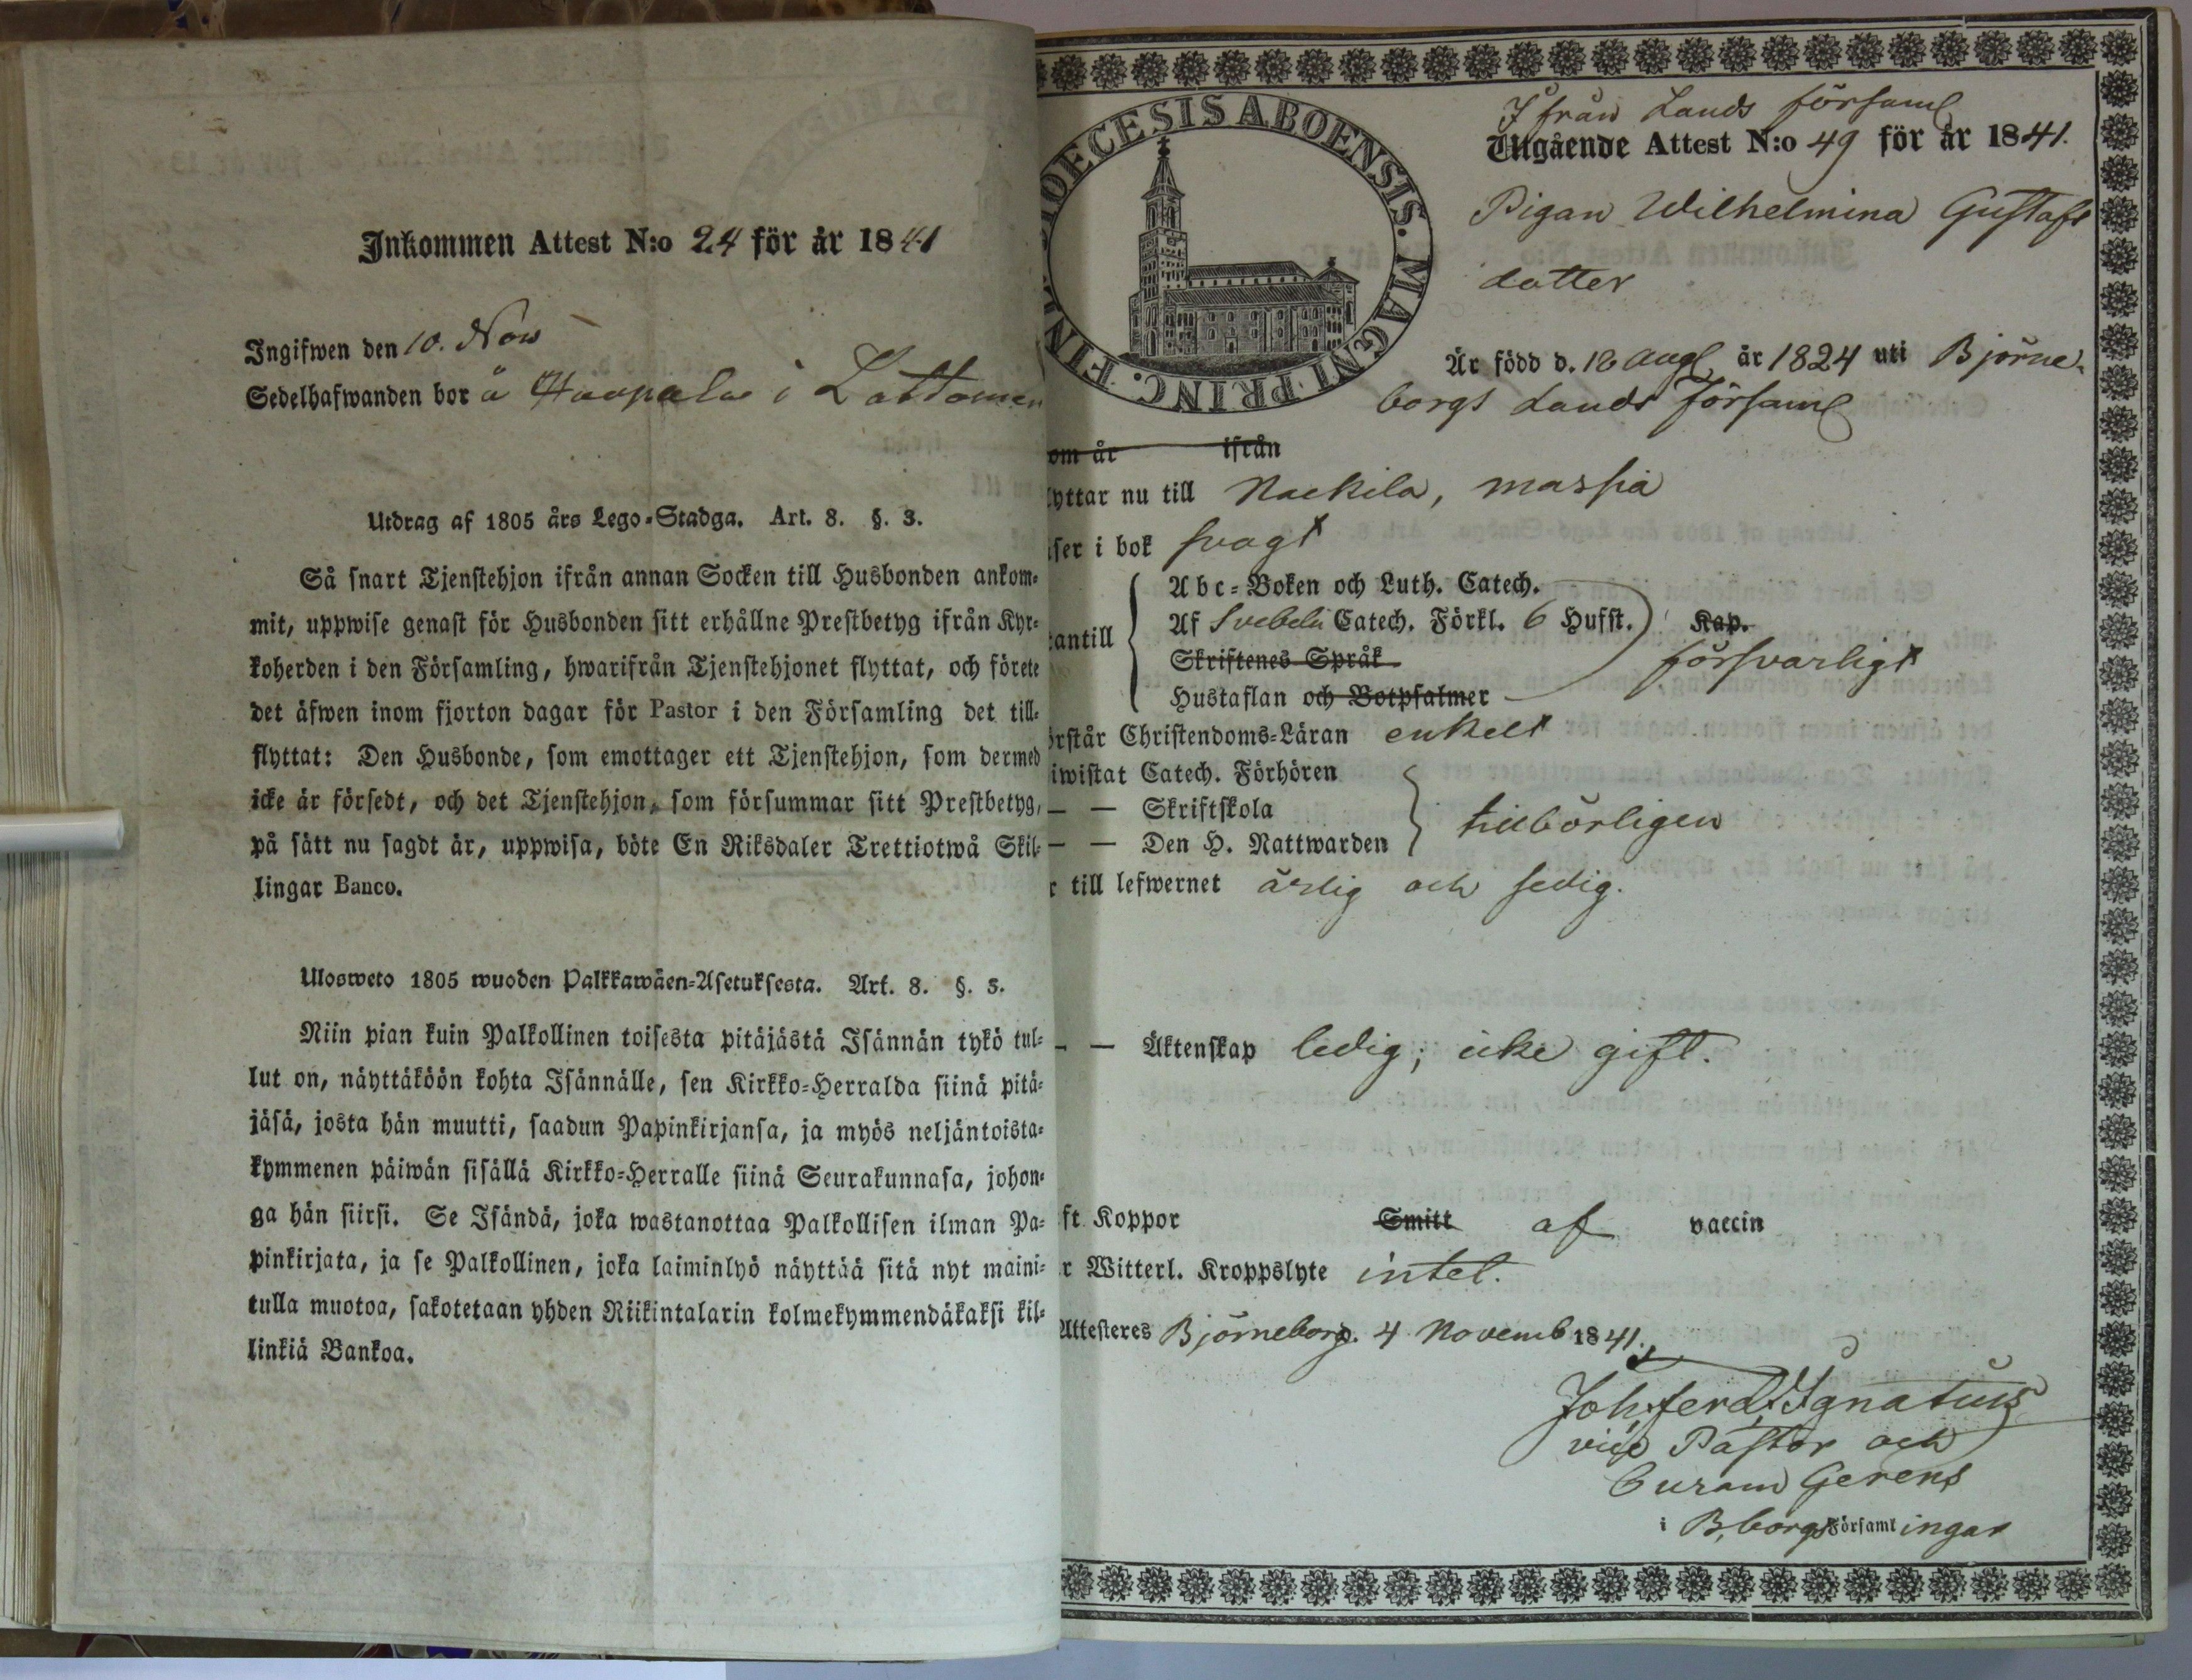 Inkommen Attest N:o 24 för år 1841
Ingifwen den 10. Nov
Sedelhafwanden bor å Haapala i Lattomeri
Utdrag af 1805 års Lego-Stadga. Art. 8. §. 3.
Så snart Tjenstehjon ifrån annan Socken till Husbonden ankom-
mit, uppwise genast för Husbonden sitt erhållne Prestbetyg ifrån Kyr-
koherden i den Församling, hwarifrån Tjenstehjonet flyttat, och förete
det äfwen inom fjorton dagar för Pastor i den Församling det till-
flyttat: Den Husbonde, som emottager ett Tjenstehjon, som dermed
icke är försedt, och det Tjenstehjon, som försummar sitt Prestbetyg,
på sätt nu sagdt är, uppwisa, böte En Riksdaler Trettiotwå Skil-
lingar Banco.
Ulosweto 1805 wuoden Palkkawäen-Asetuksesta. Art. 8. §. 3.
Niin pian kuin Palkollinen toisesta pitäjästä Isännän tykö tul-
lut on, näyttäköön kohta Isännälle, sen Kirkko-Herralda siinä pitä-
jäsä, josta hän muutti, saadun Papinkirjansa, ja myös neljäntoista-
kymmenen päiwän sisällä Kirkko-Herralle siinä Seurakunnasa, johon-
ga hän siirsi. Se Isändä, joka wastanottaa Palkollisen ilman Pa-
pinkirjata, ja se Palkollinen, joka laiminlyö näyttää sitä nyt maini-
tulla muotoa, sakotetaan yhden Riikintalarin kolmekymmendäkaksi kil-
linkiä Bankoa.
DIOECESIS ABOENSIS. MAGNI PRINC. FINL
Ifrån Lands församl
Utgående Attest N:o 49 för år 1841.
Pigan Wilhelmina Gustafs
dotter
Är född d. 18 Aug. år 1824 uti Björne-
borgs Lands Församl
om år ifrån
lyttar nu till Nackila, massia
äser i bok svagt
Abc-Boken och Luth. Catech.
utantill Af Svebelii Catech. Förkl. 6 Hufst. Kap.
Skriftenes Språk försvarligt
Hustaflan och Botpsalmer
örstår Christendoms-Läran enkelt
iwistat Catech. Förhören
— — Skriftskola
— — Den H. Nattwarden tillbörligen
r till lefwernet ärlig och sedig.
— — Äktenskap ledig; icke gift.
ft Koppor Smitt af vaccin
r Witterl. Kroppslyte intet.
Attesteres Björneborg. 4 Novemb 1841.
Joh. Ferd. Ignatius
vice Pastor och
Curam Gerens
i B,borgs Församlingar